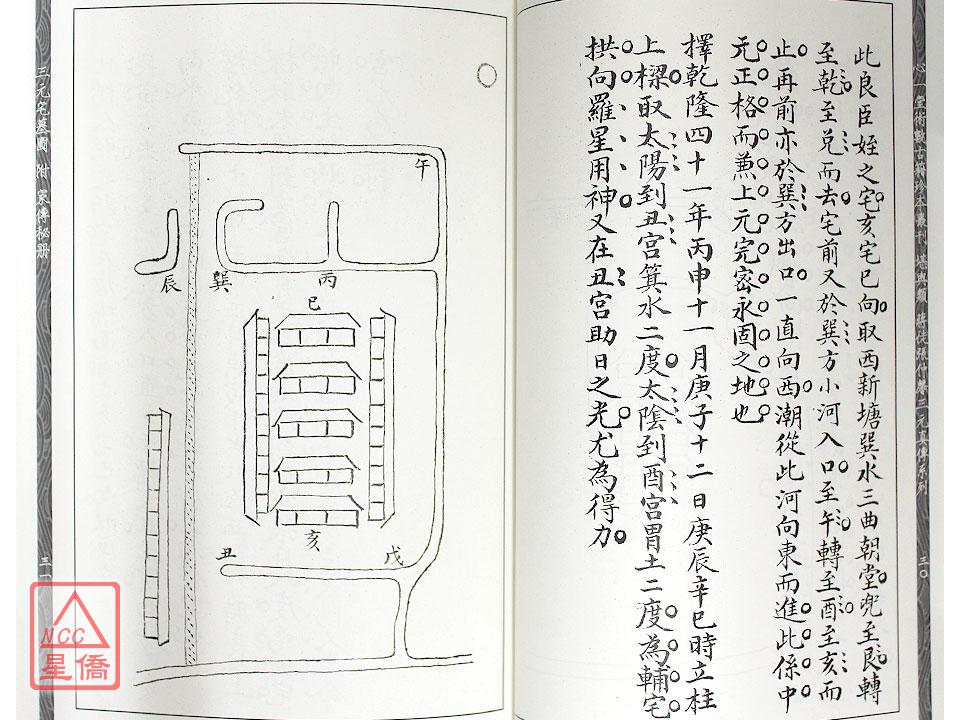 此良臣姪之宅亥宅巳向取西新塘巽水三曲朝堂兜至艮轉
至乾至兌而去宅前又於巽方小河入口至午轉至酉至亥而
止再前亦於巽方出口一直向西潮從此河向東而進此係中
元正格而兼上元完密永固之地也
擇乾隆四十一年丙申十一月庚子十二日庚辰辛巳時立柱
上樑取太陽到丑宮箕水二度太陰到酉宮胃土二度為輔宅
拱向羅星用神又在丑宮助日之光尤為得力
三〇
三元宅墓圖 附 家傳秘册
午
辰
巽
丙
巳
亥
丑
戌
三一
NCC
星僑